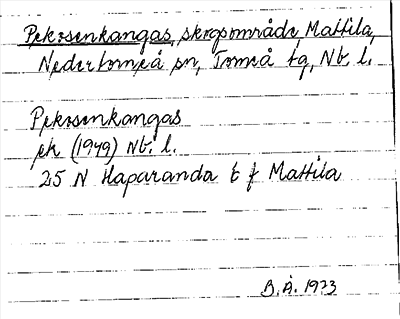 Pekosenkangas, skogsområde, Mattila,
Nedertorneå sn, Torneå tg, Nb. l.
Pekosenkangas
ek (1949) Nb. l.
25 N Haparanda t f Mattila
B. Å. 1973